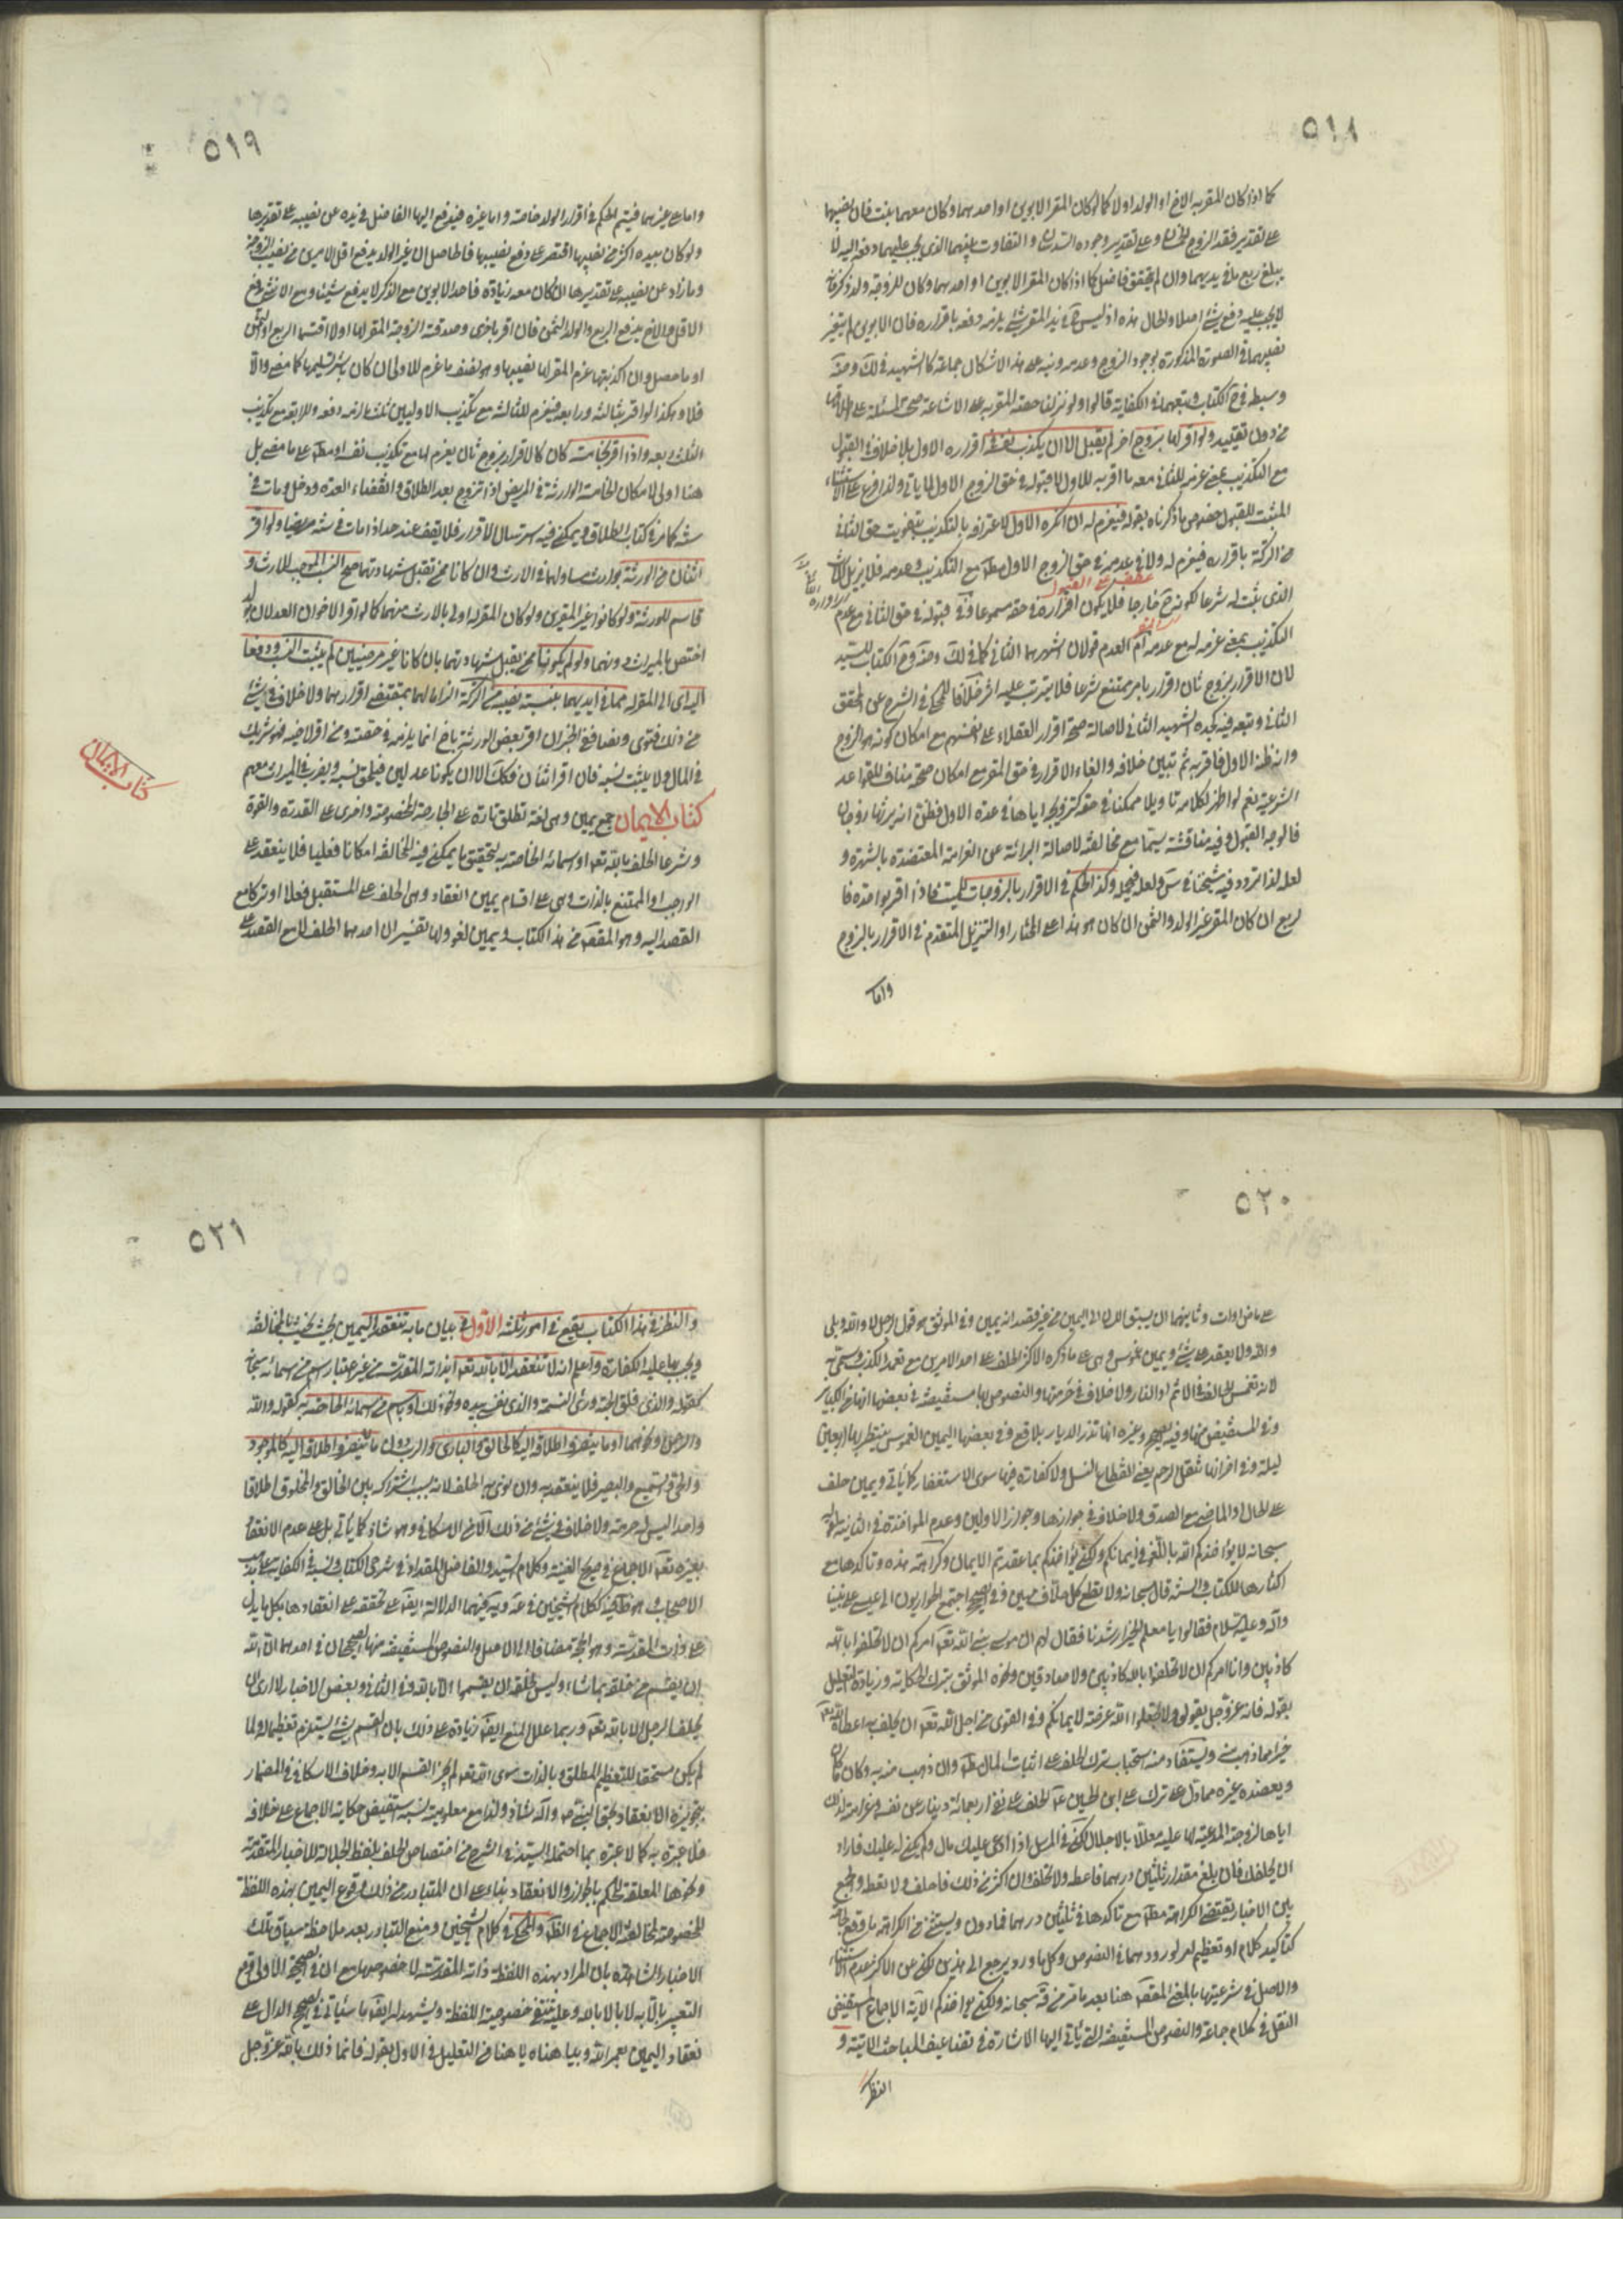 ٥١٨
كما اذا كان المقر به الاخ او الولد اولا كما لو كان المقر الابوين او احدهما وكان معهما بنت فان نصيبهما
على تقدير فقد الزوج الخمسان وعلى تقدير وجوده السدسان والتفاوت بينهما الذي يجب عليهما دفعه اليه لا
يبلغ ربع ما في يديهما وان لم يتحقق فاضل كما اذا كان المقر الابوين او احدهما وكان للزوجة ولد ذكر فانه
لا يجب عليه دفع شيء اصلا والحال هذه اذ ليس في يد المقر شيء يلزمه دفعه باقراره فان الابوين لم يتغير
نصيبهما في الصورة المذكورة بوجود الزوج وعدمه ونبه على هذا الاشكال جماعة كالشهيد في لك وضه
وسبطه في ح الكتاب وتبعهما في الكفاية قالوا ولو نزلنا حصة المقر به على الاشاعة صح المسئلة على اطلاقها
من دون تقييد ولو اقر لها بزوج اخر لم يقبل الا ان يكذب نفسه في اقراره الاول بلا خلاف في القبول
مع التكذيب بمعنى غرمه للثاني معه ما اقر به للاول لا قبوله في حق الزوج الاول لما ياتي ولذا فرع على الاستثناء
المثبت للقبول خصوص ما ذكرناه بقوله فيغرم له ان انكره الاول لاعترافه بالتكذيب بتفويت حق الثاني
من التركة باقراره فيغرم له ولا في عدمه في حق الزوج الاول مطلقا مع التكذيب وعدمه فلا يزيل الثابت
الذي ثبت له شرعا لكونه ح خارجا فلا يكون اقراره في حقه مسموعا وفي قبوله في حق الثاني مع عدم
التكذيب بمعنى غرمه له مع عدمه ام العدم قولان اشهرهما الثاني كما في لك وضه وح الكتاب للسيد
لان الاقرار بزوج ثان اقرار بامر ممتنع شرعا فلا يترتب عليه اثر خلافا للمحكي في الشرح عن المحقق
الثاني وتبعه فيه جده الشهيد الثاني لاصالة صحة اقرار العقلاء على انفسهم مع امكان كونه هو الزوج
وانه ظنه الاول فاقر به ثم تبين خلافه والغاء الاقرار في حق المقر مع امكان صحته مناف للقواعد
الشرعية نعم لو اظهر لكلامه تاويلا ممكنا في حقه كتزويجه اياها في عدة الاول فظن انه يرثها زوجان
فالوجه القبول وفيه مناقشة سيما مع مخالفته لاصالة البرائة عن الغرامة المعتضدة بالشهرة و
لعله لذا تردد فيه شيخنا في س ولعله في محله وكذا الحكم في الاقرار بالزوجات للميت فاذا اقر بواحدة فا
لربع ان كان المقر غير الولد والثمن ان كان هو هذا على المختار او التنزيل المتقدم في الاقرار بالزوج
واما
٥١٩
واما على غيرهما فيتم الحكم في اقرار الولد خاصة واما غيره فيدفع اليها الفاضل في يده عن نصيبه على تقديرها
ولو كان بيده اكثر من نصيبها اقتصر على دفع نصيبها فالحاصل ان غير الولد يدفع اقل الامرين من نصيب الزوجة
وما زاد عن نصيبه على تقديرها ان كان معه زيادة فاحد الابوين مع الذكر لا يدفع شيئا ومع الانثى يدفع
الاقل والاخ يدفع الربع والولد الثمن فان اقر باخرى وصدقته الزوجة المقر لها اولا اقتسما الربع او الثمن
او ما حصل وان اكذبتها غرم المقر لها نصيبها وهو نصف ما غرم للاولى ان كان باشر تسليمها كما مضى والا
فلا وهكذا لو اقر بثالثة ورابعة فيغرم للثالثة مع تكذيب الاوليين ثلث ما لزمه دفعه وللرابعة مع تكذيب
الثلث ربعه واذا اقر بخامسة كان كالاقرار بزوج ثان يغرم لها مع تكذيب نفسه او مطلقا على ما مضى بل
هنا اولى لامكان الخامسة الوارثة في المريض اذا تزوج بعد الطلاق وانقضاء العدة ودخل ومات في
سنته كما مر في كتاب الطلاق ويمكن فيه استرسال الاقرار فلا يقف عند حد اذا مات في سنته مريضا ولو اقر
اثنان من الورثة بوارث مساو لهما في الارث وان كانا ممن تقبل شهادتهما صح النسب الموجب للارث و
قاسم للورثة ولو كانوا غير المقرين ولو كان المقر له اولى بالارث منهما كما لو اقر الاخوان العدلان بولد
اختص بالميراث دونهما ولو لم يكونا ممن يقبل شهادتهما بان كانا غير مرضيين لم يثبت النسب ودفعا
اليه اي الى المقر له مما في ايديهما بنسبة نصيبه من التركة الزاما لهما بمقتضى اقرارهما ولا خلاف في شيء
من ذلك فتوى ونصا ففي الخبر ان اقر بعض الورثة باخ انما يلزمه في حصته ومن اقر لاخيه فهو شريك
في المال ولا يثبت نسبه فان اقر اثنان فكك الا ان يكونا عدلين فيلحق نسبه ويضرب في الميراث معهم
كتاب الايمان جمع يمين وهي لغة تطلق تارة على الجارحة المخصوصة واخرى على القدرة والقوة
وشرعا الحلف بالله تعالى او اسمائه الخاصة به لتحقيق ما يمكن فيه المخالفة امكانا فعليا فلا ينعقد على
الواجب او الممتنع بالذات وهي على اقسام يمين انعقاد وهي الحلف على المستقبل فعلا او تركا مع
القصد اليه وهو المقصود من هذا الكتاب ويمين لغو ولها تفسيران احدهما الحلف لا مع القصد على
كتاب الايمان
٥٢٠
على ماض او آت وثانيهما ان يسبق اللسان الى اليمين من غير قصد انه يمين وفي الموثق هو قول الرجل لا والله وبلى
والله ولا يعقد على شيء ويمين غموس وهي على ما ذكره الاكثر الحلف على احد الامرين مع تعمد الكذب وسمي به
لانه تغمس الحالف في الاثم او النار ولا خلاف في حرمتها والنصوص بها مستفيضة في بعضها انها من الكبائر
وفي المستفيض منها وفيه الصحيح وغيره انها تذر الديار بلاقع وفي بعضها اليمين الغموس ينتظر بها اربعين
ليلة وفي اخر انها تنقل الرحم يعني انقطاع النسل ولا كفارة فيها سوى الاستغفار كما ياتي ويمين حلف
على الحال والماضي مع الصدق ولا خلاف في جوازها وجواز الاولين وعدم المؤاخذة في الثانية لقوله
سبحانه لا يؤاخذكم الله باللغو في ايمانكم ولكن يؤاخذكم بما عقدتم الايمان وكراهة هذه وتاكدها مع
اكثارها للكتاب والسنة قال سبحانه ولا تطع كل حلاف مهين وفي الصحيح اجتمع الحواريون الى عيسى على نبينا
وآله وعليه السلام فقالوا يا معلم الخير ارشدنا فقال لهم ان موسى نبي الله تعالى امركم ان لا تحلفوا بالله
كاذبين وانا امركم ان لا تحلفوا بالله كاذبين ولا صادقين ونحوه الموثق بترك الحكاية وزيادة التعليل
بقوله فانه عز وجل يقول ولا تجعلوا الله عرضة لايمانكم وفي القوي من اجل الله تعالى ان يحلف به اعطاه الله تعالى
خيرا مما ذهب منه ويستفاد منه استحباب ترك الحلف على اثبات المال مطلقا وان ذهب منه به وكان ما كان
ويعضده غيره مما دل على ترك علي ابن الحسين ع الحلف على نحو اربعمائة دينار عن نفسه وغرامته لذلك
اياها لزوجته المدعية لها عليه معللا بالاجلال لكن في المرسل اذا ادعى عليك مال ولم يكن له عليك فاراد
ان يحلفك فان بلغ مقدار ثلثين درهما فاعطه ولا تحلف وان اكثر من ذلك فاحلف ولا تعطه والجمع
بين الاخبار يقتضي الكراهة مطلقا مع تاكدها في ثلثين درهما فما دون ويستثنى من الكراهة ما وقع لحاجة
كتاكيد كلام او تعظيم امر لورودهما في النصوص وكل ما ورد يرجع الى هذين لكن عن الاكثر عدم الاستثناء
والاصل في شرعيتها بالمعنى المقصود هنا بعد ما مر من قوله سبحانه ولكن يؤاخذكم الآية الاجماع المستفيض
النقل في كلام جماعة والنصوص المستفيضة التي ياتي اليها الاشارة في تضاعيف المباحث الآتية و
النظر
٥٢١
والنظر في هذا الكتاب يقع في امور ثلثة الاول في بيان ما به تنعقد اليمين بحيث يحنث بالمخالفة
ويجب بها عليه الكفارة واعلم انه لا تنعقد الا بالله تعالى اي ذاته المقدسة من غير اعتبار اسم من اسمائه سبحانه
كقوله والذي فلق الحبة وبرئ النسمة والذي نفسي بيده ونحو ذلك او باسم من اسمائه الخاصة به كقوله والله
والرحمن ونحوهما او ما ينصرف اطلاقه اليه كالخالق والباري والرب دون ما لا ينصرف اطلاقه اليه كالموجود
والحي والسميع والبصير فلا ينعقد به وان نوى به الحلف لانه بسبب اشتراكه بين الخالق والمخلوق اطلاقا
واحدا ليس له حرمة ولا خلاف في شيء من ذلك الا من الاسكافي وهو شاذ كما ياتي بل على عدم الانعقاد
بغيره تعالى الاجماع في صريح الغنية وكلام السيد والفاضل المقداد في شرحي الكتاب ونسبه في الكفاية الى مذهب
الاصحاب وهو ظاهر فيه ككلام الشيخين في عه ويه لتضمنهما الدلالة ايضا على تحققه على انعقادها بكل ما يدل
على ذات المقدسة وهو الحجة مضافا الى الاصل والنصوص المستفيضة منها الصحيحان في احدهما ان الله
ان يقسم من خلقه بما شاء وليس لخلقه ان يقسموا الا به وفي الثاني وبعض الاخبار لا ارى ان
يحلف الرجل الا بالله تعالى وربما علل المنع ايضا زيادة على ذلك بان القسم بشيء يستلزم تعظيما له ولما
لم يكن مستحقا للتعظيم المطلق وبالذات سوى الله تعالى لم يجز القسم الا به وخلاف الاسكافي في المضمار
بتجويزه الانعقاد بحق النبي ص وآله شاذ ولذا مع معلومية نسبه يستفيض حكاية الاجماع على خلافه
فلا عبرة به كما لا عبرة بما احتمله السيد في الشرح من اختصاص الحلف بلفظ الجلالة للاخبار المتقدمة
ونحوها المعلقة للحكم بالجواز والانعقاد بناء على ان المتبادر من ذلك وقوع اليمين بهذه اللفظة
المخصوصة لمخالفته الاجماع في الظاهر والمحكي في كلام الشيخين ومنع التبادر بعد ملاحظة سياق تلك
الاخبار الشاهدة بان المراد بهذه اللفظة ذاته المقدسة لا خصوصها مع ان في الصحيح الاول وقع
التعبير بالا به لا بالا بالله وعليه تنتفي خصوصية اللفظة ويشهد له ايضا ما سياتي في الصحيح الدال على
انعقاد اليمين بعمر الله وبيا هناه يا هناه من التعليل في الاول بقوله فانما ذلك بالله عز وجل